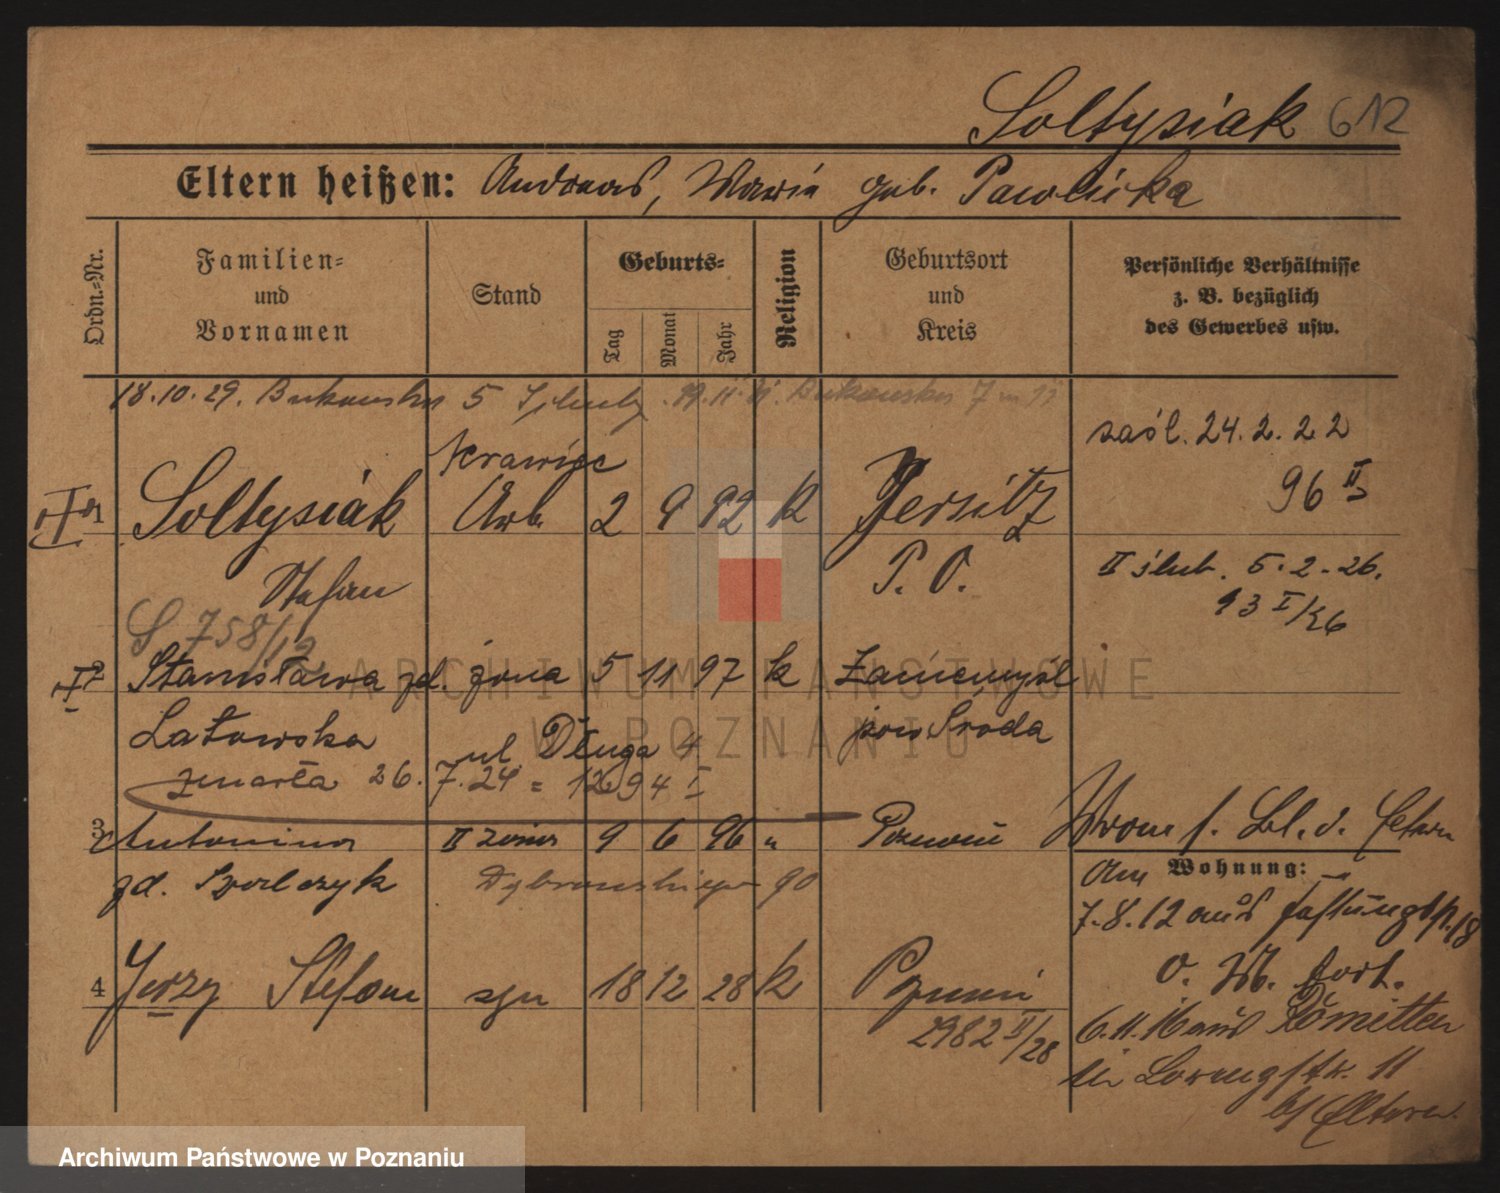 Soltysiak 612
Eltern heißen: Andreas, Maria geb. Pawlicka
Ordn.-Nr.
Familien-
und
Vornamen
Stand
Geburts-
Tag
Monat
Jahr
Religion
Geburtsort
und
Kreis
Persönliche Verhältnisse
z. B. bezüglich
des Gewerbes usw.
18.10.29. Bukowska 5 Bukowska 7
zaśl. 24.2.22
krawiec
96 II
1 Soltysiak Arb. 2 9 92 k Jersitz
Stefan P. O.
II ślub. 5.2.26.
93 I/26
S 758/12
2 Stanisława zd. żona 5 11 97 k Zaniemyśl
Latowska ul. Długa 4 pow Środa
zmarła 26.7.24 = 1294 I
3 Antonina II żona 9 6 96 " Poznań
gd.
90
4 Jerzy Stefan syn 18 12 28 k Poznań
2982 II/28
Wohnung:
Am
7.8.12 aus
O. W. fort.
6.11.16 aus
11
b/ Eltern.
ARCHIWUM PAŃSTWOWE
W POZNANIU
Archiwum Państwowe w Poznaniu